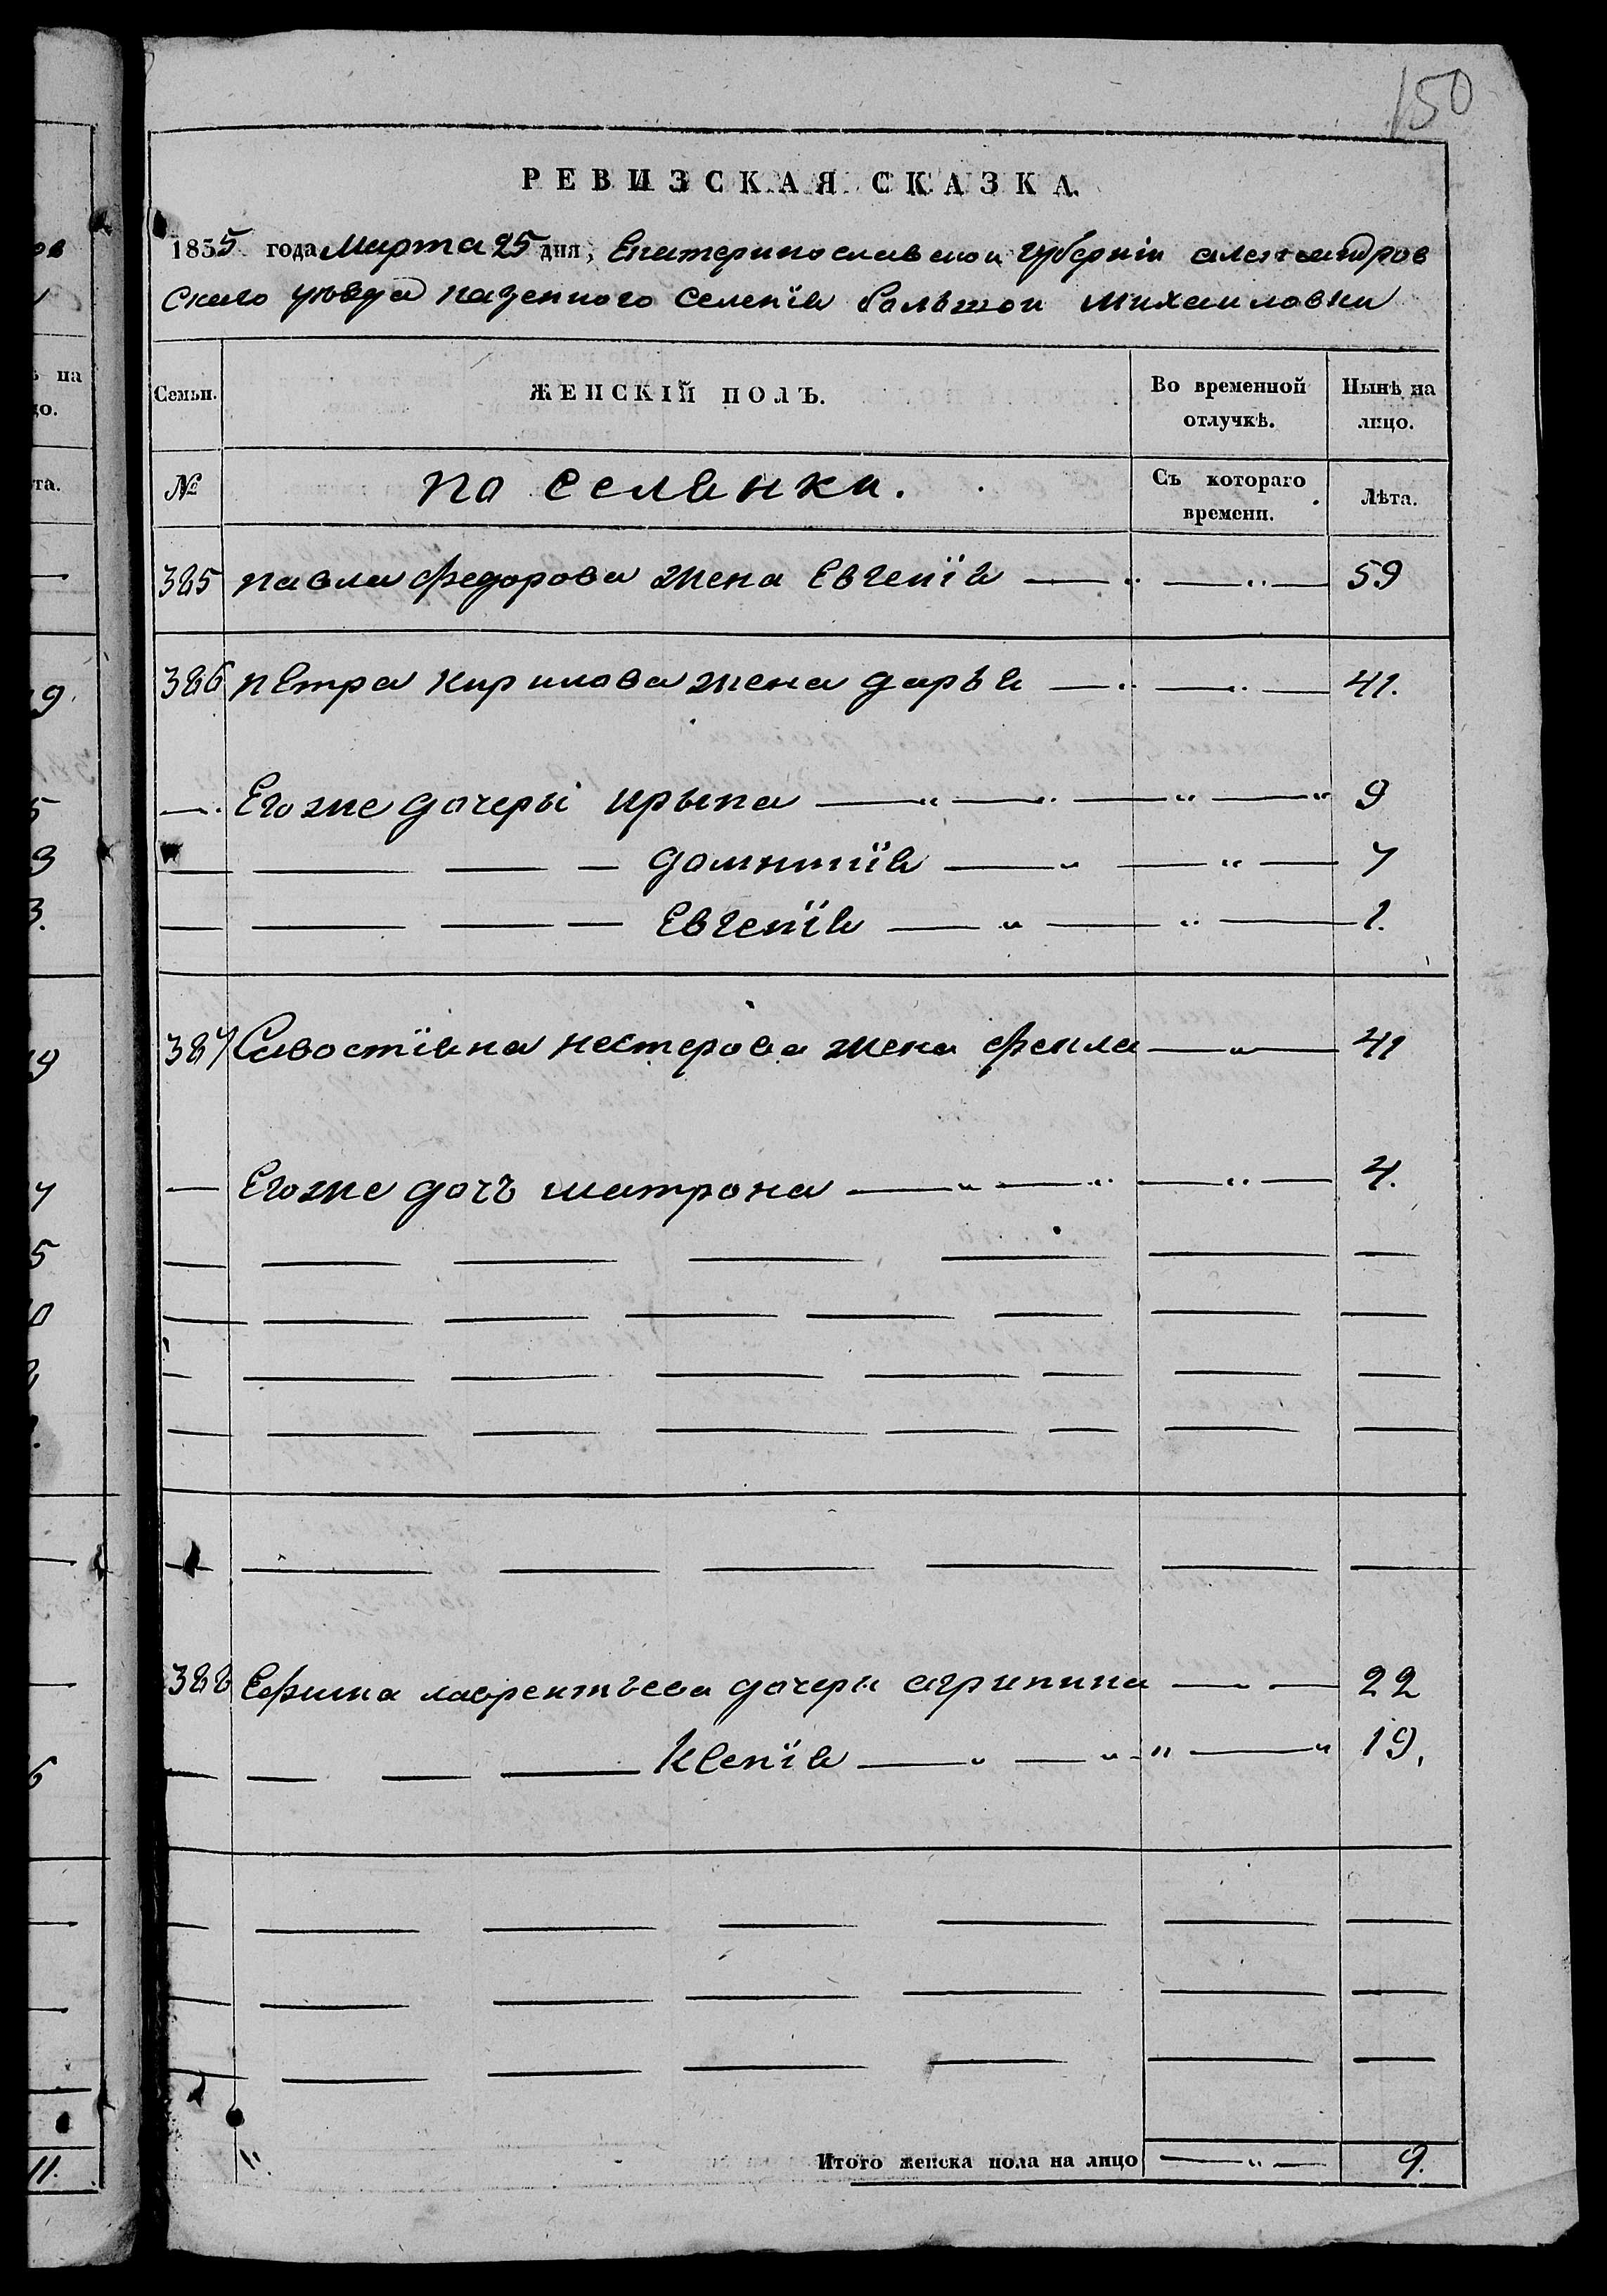 150
РЕВИЗСКАЯ СКАЗКА.
1835 года Марта 25 дня, Екатеринославской губернiи александров
Скаго уѣзда казенного Селенiя болшой михаиловки
Семьи. ЖЕНСКIЙ ПОЛЪ. Во временной отлучкѣ. Нынѣ на лицо.
№ поселянки. Съ котораго времени. Лѣта.
385 павла федорова жена Евгенiя — „ — „ — 59
386 петра кирилова жена даръя — „ — „ — 41.
— Егоже дочеры ирына — „ — „ — „ — „ 9
— — — — домникiя — „ — „ — 7
— — — — Евгенiя — „ — „ — 1.
387 Савостiяна нестерова жена фекла — „ — 41
— Егоже дочъ матрона — „ — „ — „ — 4.
388 Ефима лаврентьева дочери агрипина — — 22
— — — — Ксенiя — „ — „ — „ — „ 19.
Итого женска пола на лицо — „ — 9.
на
цо.
та.
11.